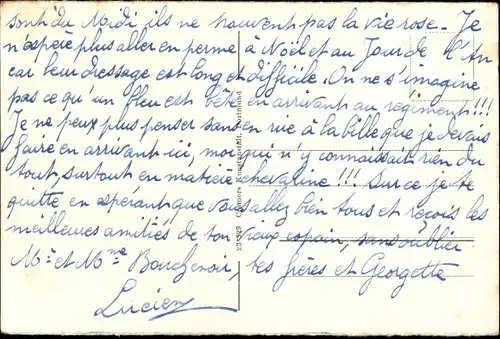 sont du Midi ils ne trouvent pas la vie rose. Je
n'espère plus aller en perme à Noël et au Jour de l'An
car leur dressage est long et difficile. On ne s'imagine
pas ce qu'un bleu est bête en arrivant au régiment!!!
Je ne peux plus penser sans en rire à la bille que je devais
faire en arrivant ici, moi qui n'y connaissait rien du
tout, surtout en matière chevaline!!! Sur ce je te
quitte en espérant que vous allez bien tous et reçois les
meilleures amitiés de ton vieux copain, sans oublier
Mr et Mme Boucheroir, tes frères et Georgette
Lucien